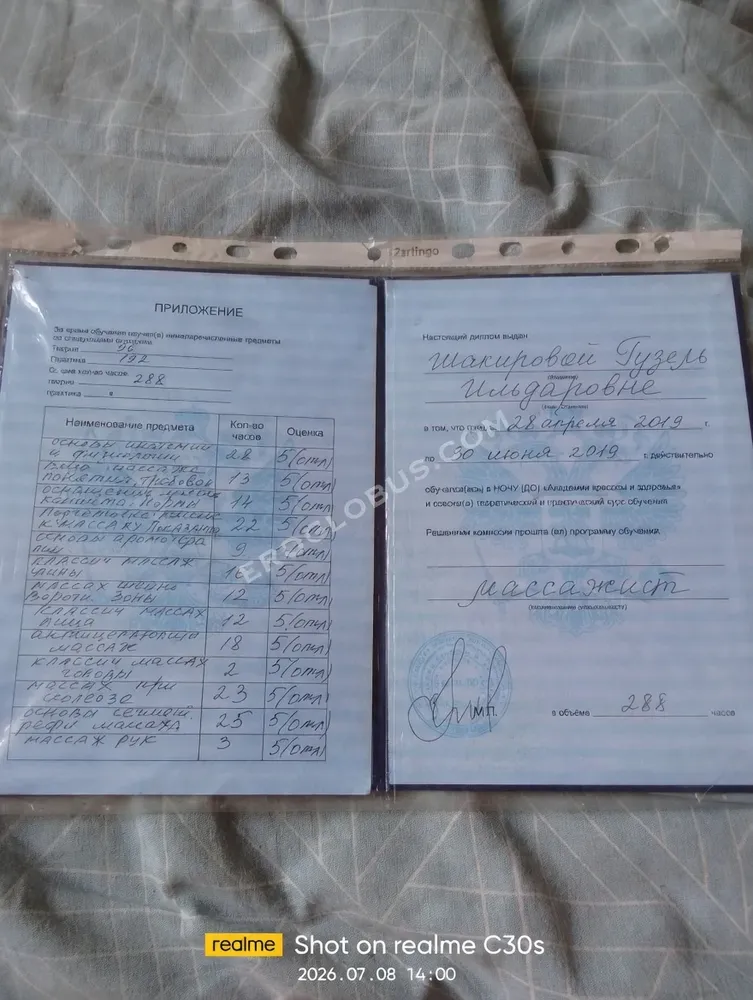 2artingo
ПРИЛОЖЕНИЕ
За время обучения изучил(а) нижеперечисленные предметы
по следующим
Теория 96
Практика 192
Общее кол-во часов
теория 288
практика
Наименование предмета Кол-во часов Оценка
основы анатомии и физиологии 28 5 (отл)
массажа понятия 13 5 (отл)
оснащение кабинета нормы 14 5 (отл)
Подготовка к массажу показания 22 5 (отл)
основы аромотерапии 9 5 (отл)
классич массаж спины 5 (отл)
массаж шейно воротн. зоны 12 5 (отл)
классич массаж лица 12 5 (отл)
антицеллюлитный массаж 18 5 (отл)
классич массаж головы 2 5 (отл)
массаж при 23 5 (отл)
основы сегмент. рефл массажа 25 5 (отл)
массаж рук 3 5 (отл)
Настоящий диплом выдан
Шакировой Гузель
(фамилия)
Ильдаровне
(имя, отчество)
в том, что она с 28 апреля 2019 г.
по 30 июня 2019 г. действительно
обучалов(ась) в НОЧУ (ДО) «Академии красоты и здоровья»
и освоил(а) теоретический и практический курс обучения.
Решением комиссии прошла (ел) программу обучения
массажист
(наименование специальности)
М.П.
в объёме 288 часов
ERBOLOBUS.COM
realme Shot on realme C30s
2026.07.08 14:00